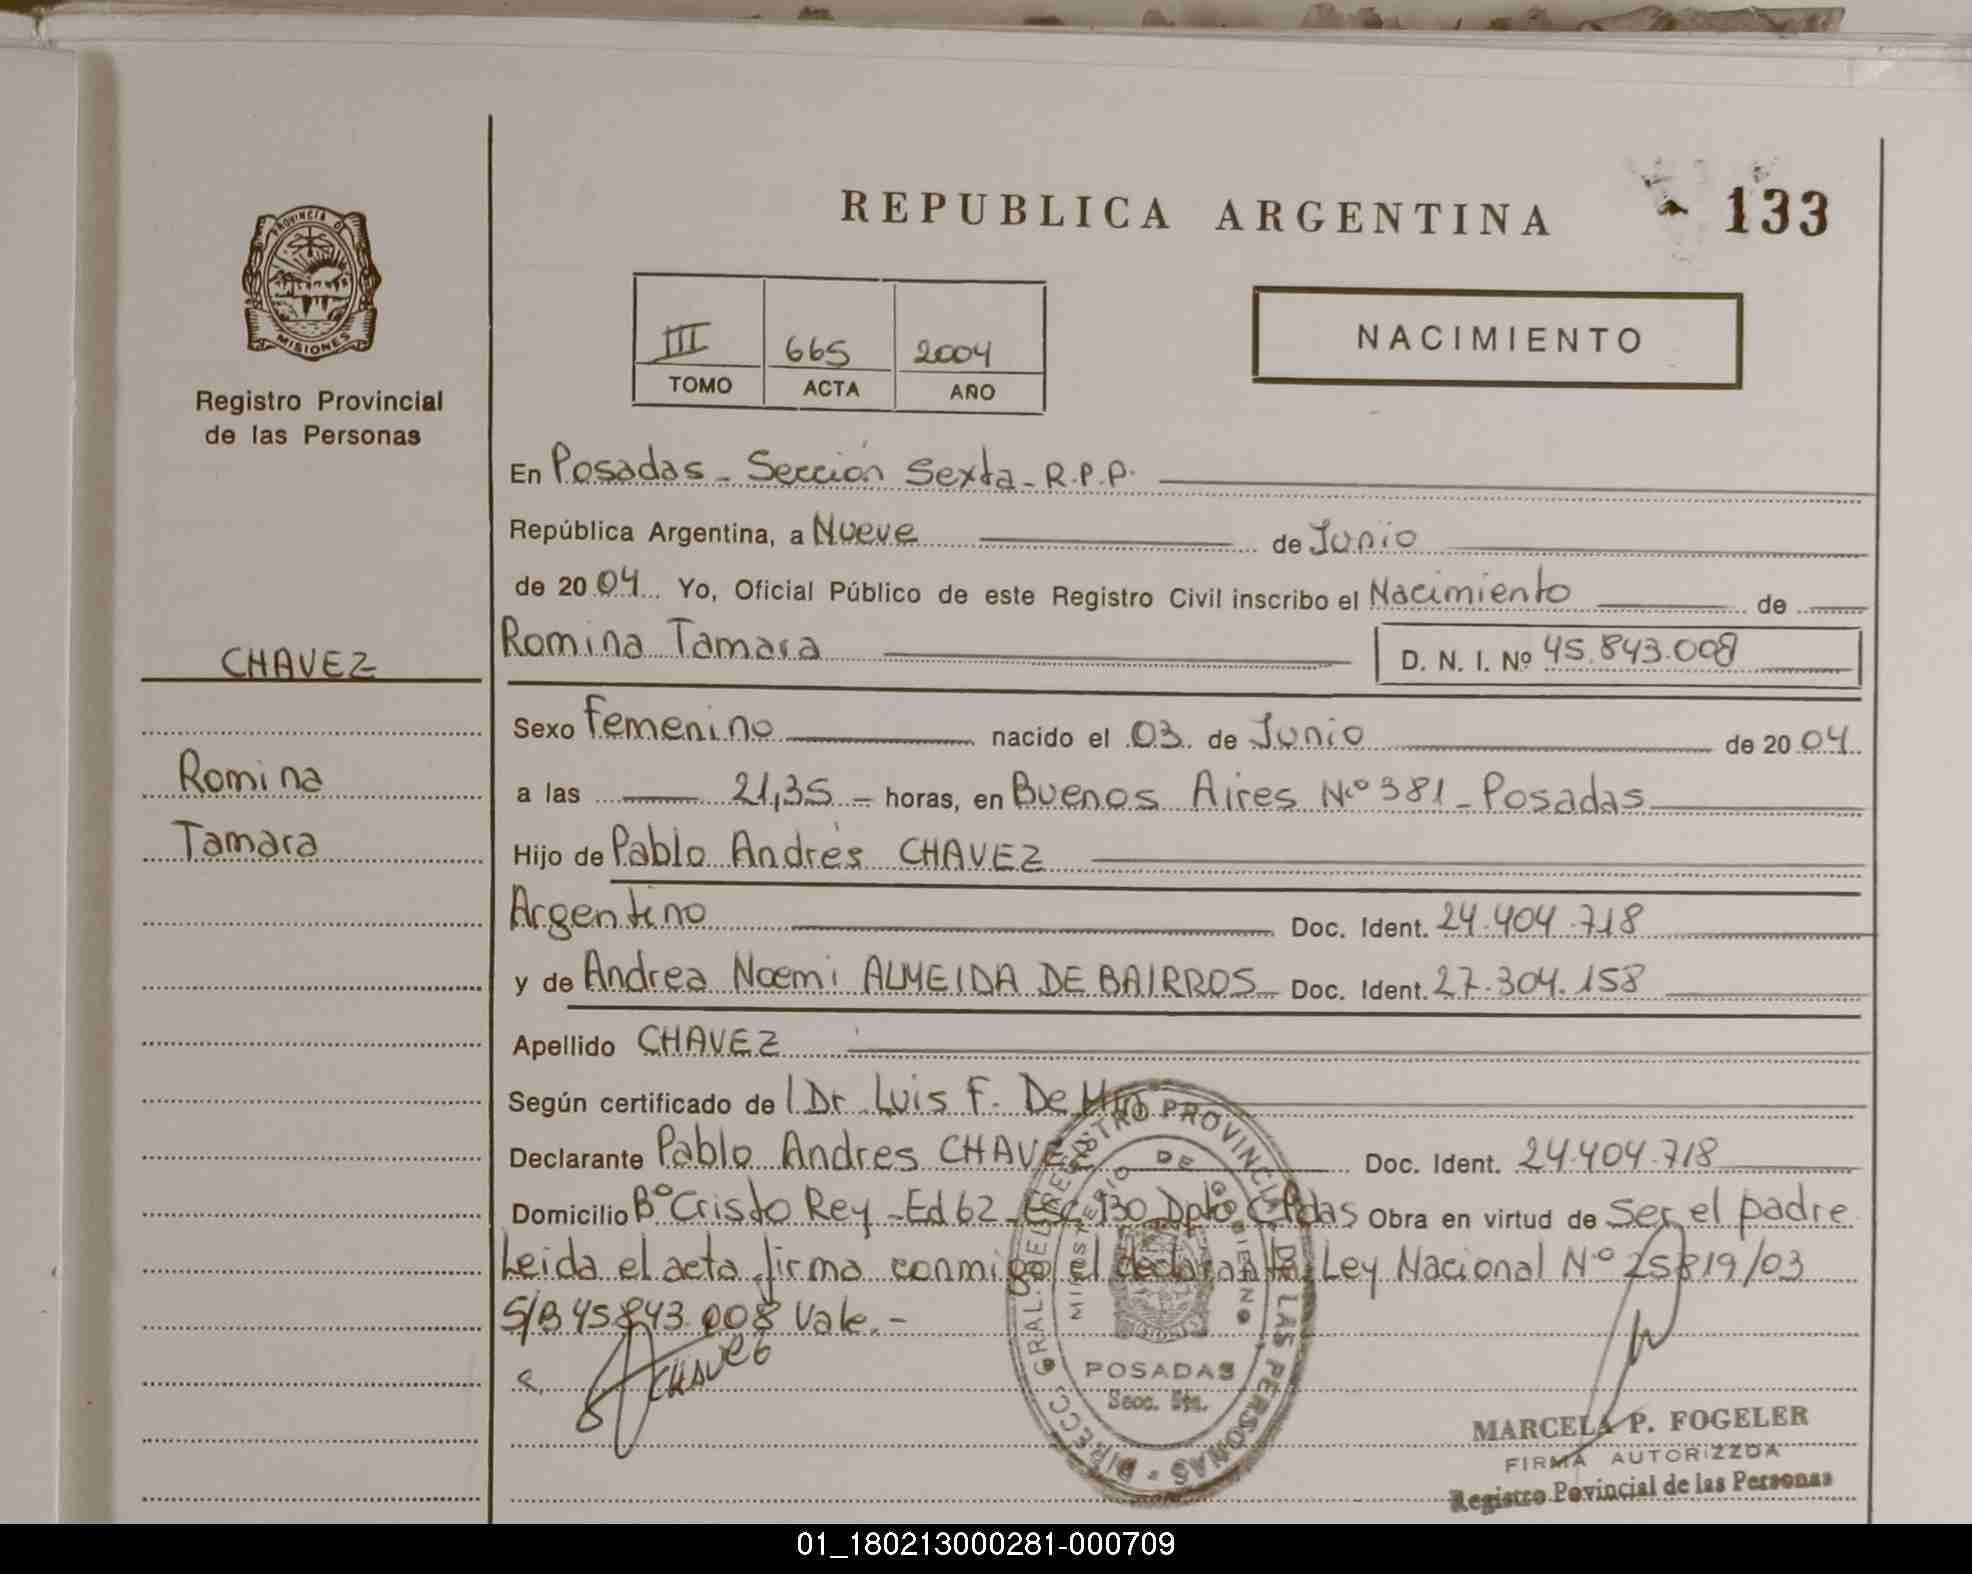 REPUBLICA ARGENTINA
133
PROVINCIA DE
MISIONES
Registro Provincial
de las Personas
III 665 2004
TOMO ACTA AÑO
NACIMIENTO
En Posadas - Sección Sexta - R.P.P.
República Argentina, a Nueve de Junio
de 2004 Yo, Oficial Público de este Registro Civil inscribo el Nacimiento de
Romina Tamara D. N. I. Nº 45.843.008
CHAVEZ
Romina
Tamara
Sexo Femenino nacido el 03 de Junio de 2004
a las 21,35 - horas, en Buenos Aires Nº 381 - Posadas
Hijo de Pablo Andrés CHAVEZ
Argentino Doc. Ident. 24.404.718
y de Andrea Noemi ALMEIDA DE BAIRROS Doc. Ident. 27.304.158
Apellido CHAVEZ
Según certificado de Dr Luis F. De
Declarante Pablo Andres CHAVEZ Doc. Ident. 24.404.718
Domicilio Bº Cristo Rey - Ed 62 - Esc 130 Dpto C Pdas Obra en virtud de Ser el padre
Leida el acta firma conmigo el declarante Ley Nacional Nº 25819/03
S/B 45.843.008 Vale. -
CHAVEZ
DIRECC. GRAL. DEL REGISTRO PROVINCIAL DE LAS PERSONAS
MINISTERIO DE GOBIERNO
POSADAS
Secc. 6ta.
MARCELA P. FOGELER
FIRMA AUTORIZZDA
Registro Povincial de las Personas
01_180213000281-000709